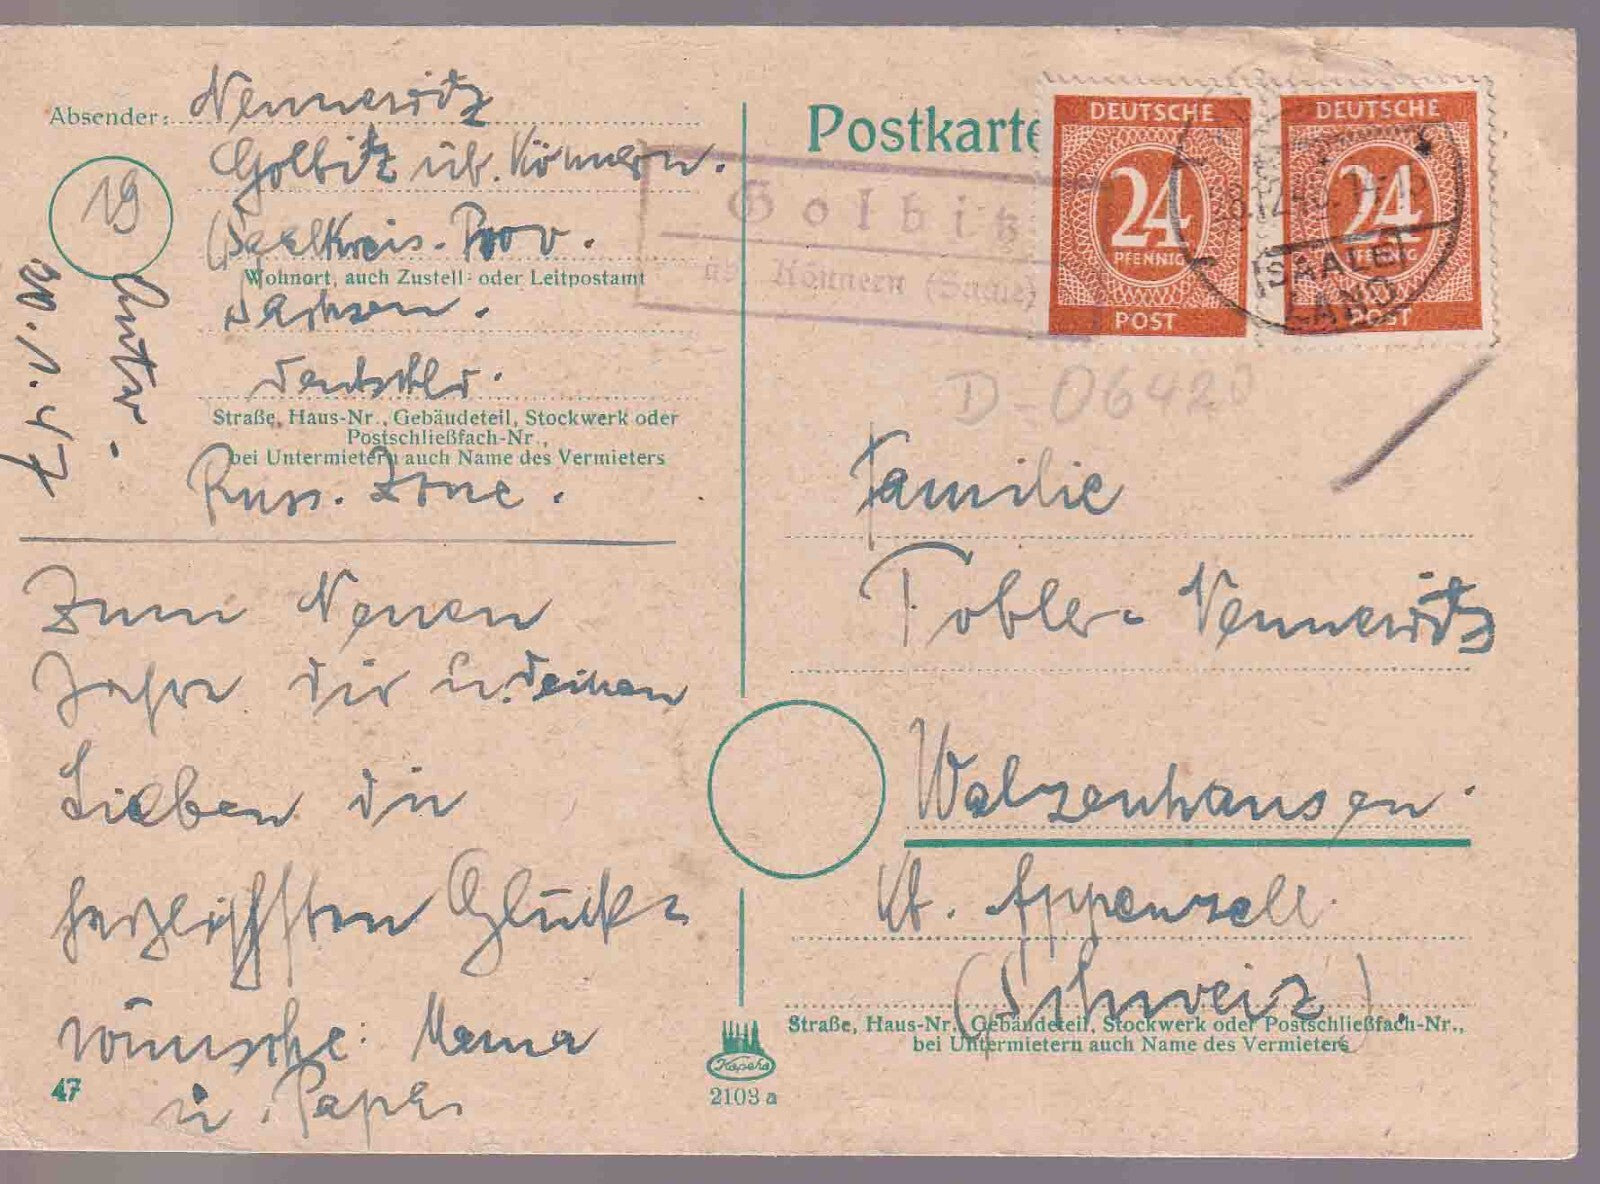 Absender: Nennewitz
Golbitz üb. Könnern.
(Saalkreis. Prov.
Wohnort, auch Zustell- oder Leitpostamt
Sachsen.
Deutschld.
Straße, Haus-Nr., Gebäudeteil, Stockwerk oder
Postschließfach-Nr.,
bei Untermietern auch Name des Vermieters
Russ. Zone.
19
Antw.
20.1.47
Zum Neuen
Jahre dir u. deinen
Lieben die
herzlichsten Glück-
wünsche: Mama
u. Papa
47
Postkarte
Golbitz
üb. Könnern (Saale)
DEUTSCHE
24
PFENNIG
POST
DEUTSCHE
24
PFENNIG
POST
(SAALE)
LAND
D-06420
Familie
Tobler-Nennewitz
Walzenhausen.
Kt. Appenzell.
(Schweiz).
Straße, Haus-Nr., Gebäudeteil, Stockwerk oder Postschließfach-Nr.,
bei Untermietern auch Name des Vermieters
Kapehs
2103 a